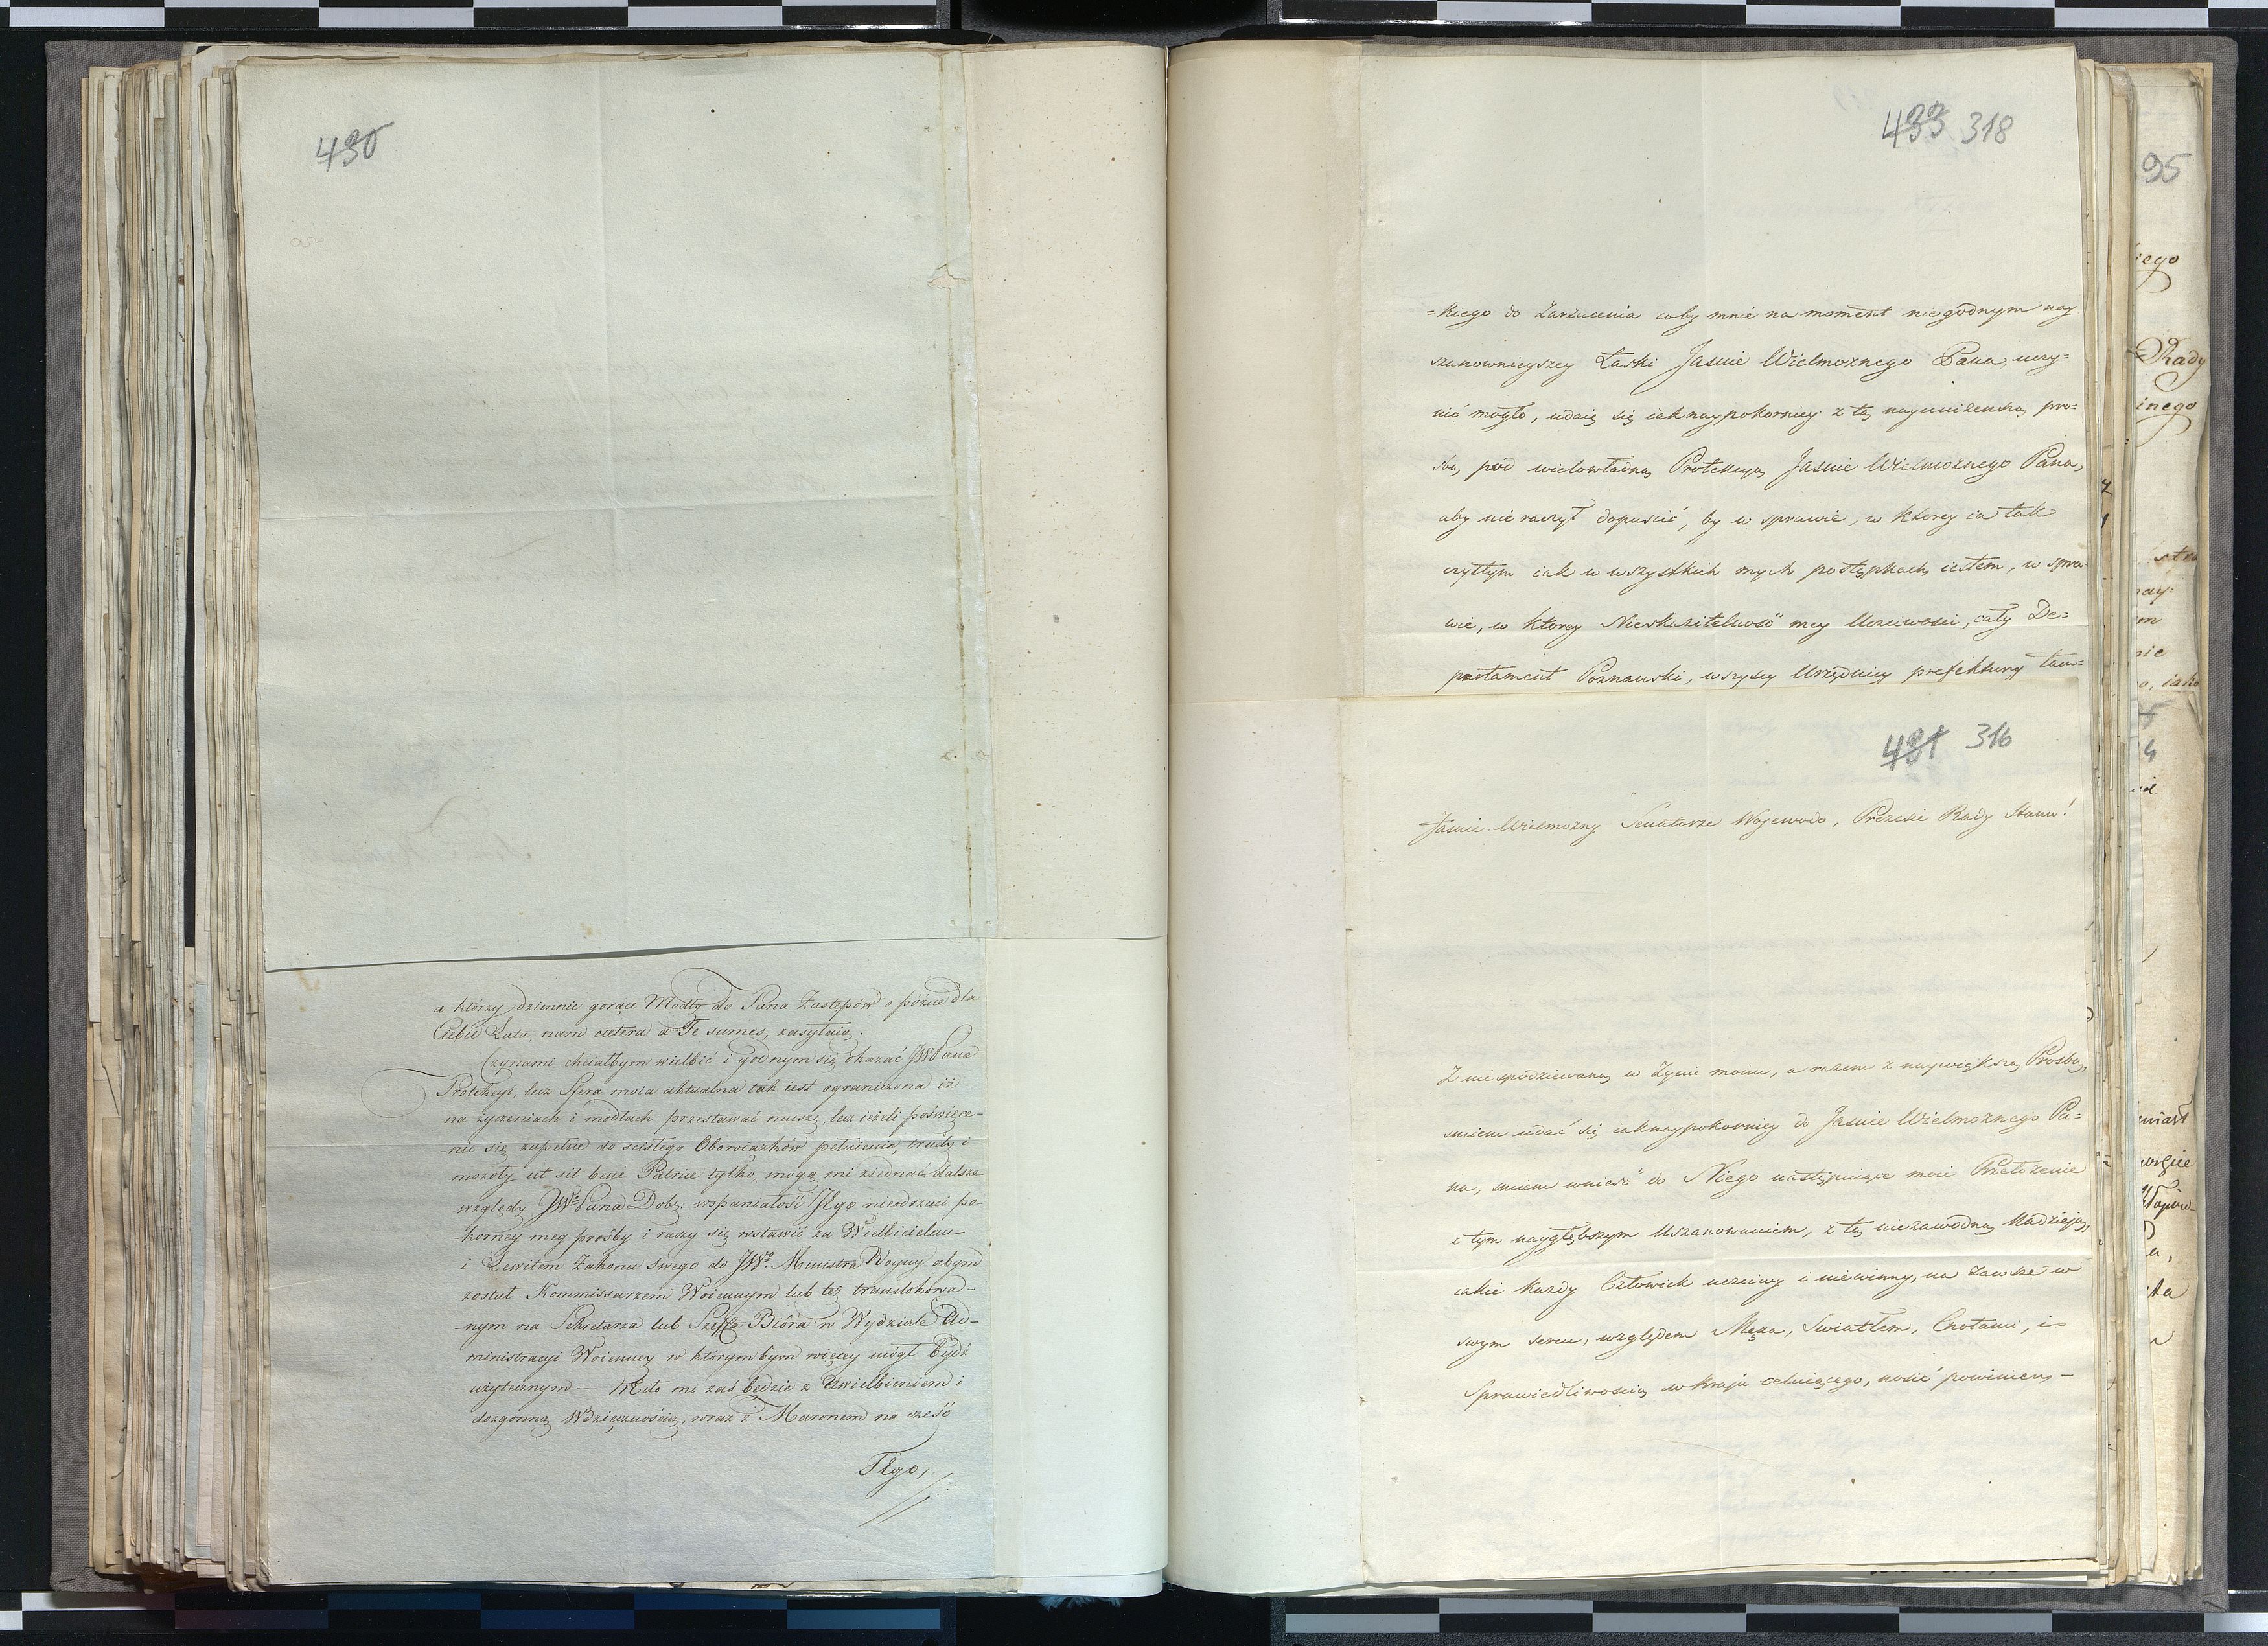 430
a którzy dziennie gorące Modły do Pana Zastępów o późne dla
Ciebie Lata, nam cætera a Te sumes, zasyłaią.
Czynami chciałbym wielbić i godnym się okazać JWPana
Protekcyi, lecz Sfera moia aktualna tak iest ograniczona iż
na życzeniach i modłach przestawać muszę, lecz ieżeli poświęce-
-nie się zupełne do scisłego Obowiązków pełnienia, trudy i
mozoły ut sit bene Patriæ tylko, mogą mi ziednać dalsze
względy JWo Pana Dobr: wspaniałość JEgo nieodrzuci po-
-korney mey prośby i raczy się wstawić za Wielbicielem
i Lewitem Zakonu swego do JWo. Ministra Woyny abym
został Kommissarzem Woiennym lub też translokowa-
-nym na Sekretarza lub Szeffa Bióra w Wydziale Ad-
ministracyi Woienney w którymbym więcey mógł bydź
użytecznym — Miło mi zaś będzie z Uwielbieniem i
dozgonną Wdzięcznością, wraz z Maronem na cześć
TEgo,
433 318
=kiego do Zarzucenia coby mnie na moment niegodnym nay
szanownieyszey Łaski Jaśnie Wielmożnego Pana, uczy=
nić mogło, udaię się iaknaypokorniey z tą nayuniżeńszą pro=
śbą pod wielowładną Protekcyą Jaśnie Wielmożnego Pana,
aby nie raczył dopuścić, by w sprawie, w ktorey ia tak
czystym iak w wszystkich mych postępkach iestem, w spra
wie, w ktorey Nieskazitelność mey Uczciwości, cały De=
partament Poznanski, wszyscy Urzędnicy prefektury tam=
431 316
Jaśnie Wielmożny Senatorze Wojewodo, Prezesie Rady Stanu!
Z niespodziewaną w Życiu moim, a razem z naywiększą Prosbą,
smiem udać się iaknaypokorniey do Jaśnie Wielmożnego Pa=
na, smiem wnieść do Niego następuiące moie Przełożenie
z tym naygłębszym Uszanowaniem, z tą niezawodną Nadzieją,
iakie każdy Człowiek uczciwy i niewinny, na zawsze w
swym sercu, względem Męża, Swiatłem, Cnotami, i
Sprawiedliwością w kraju celuiącego, nosić powinien,-
95
iego
Rady
inego